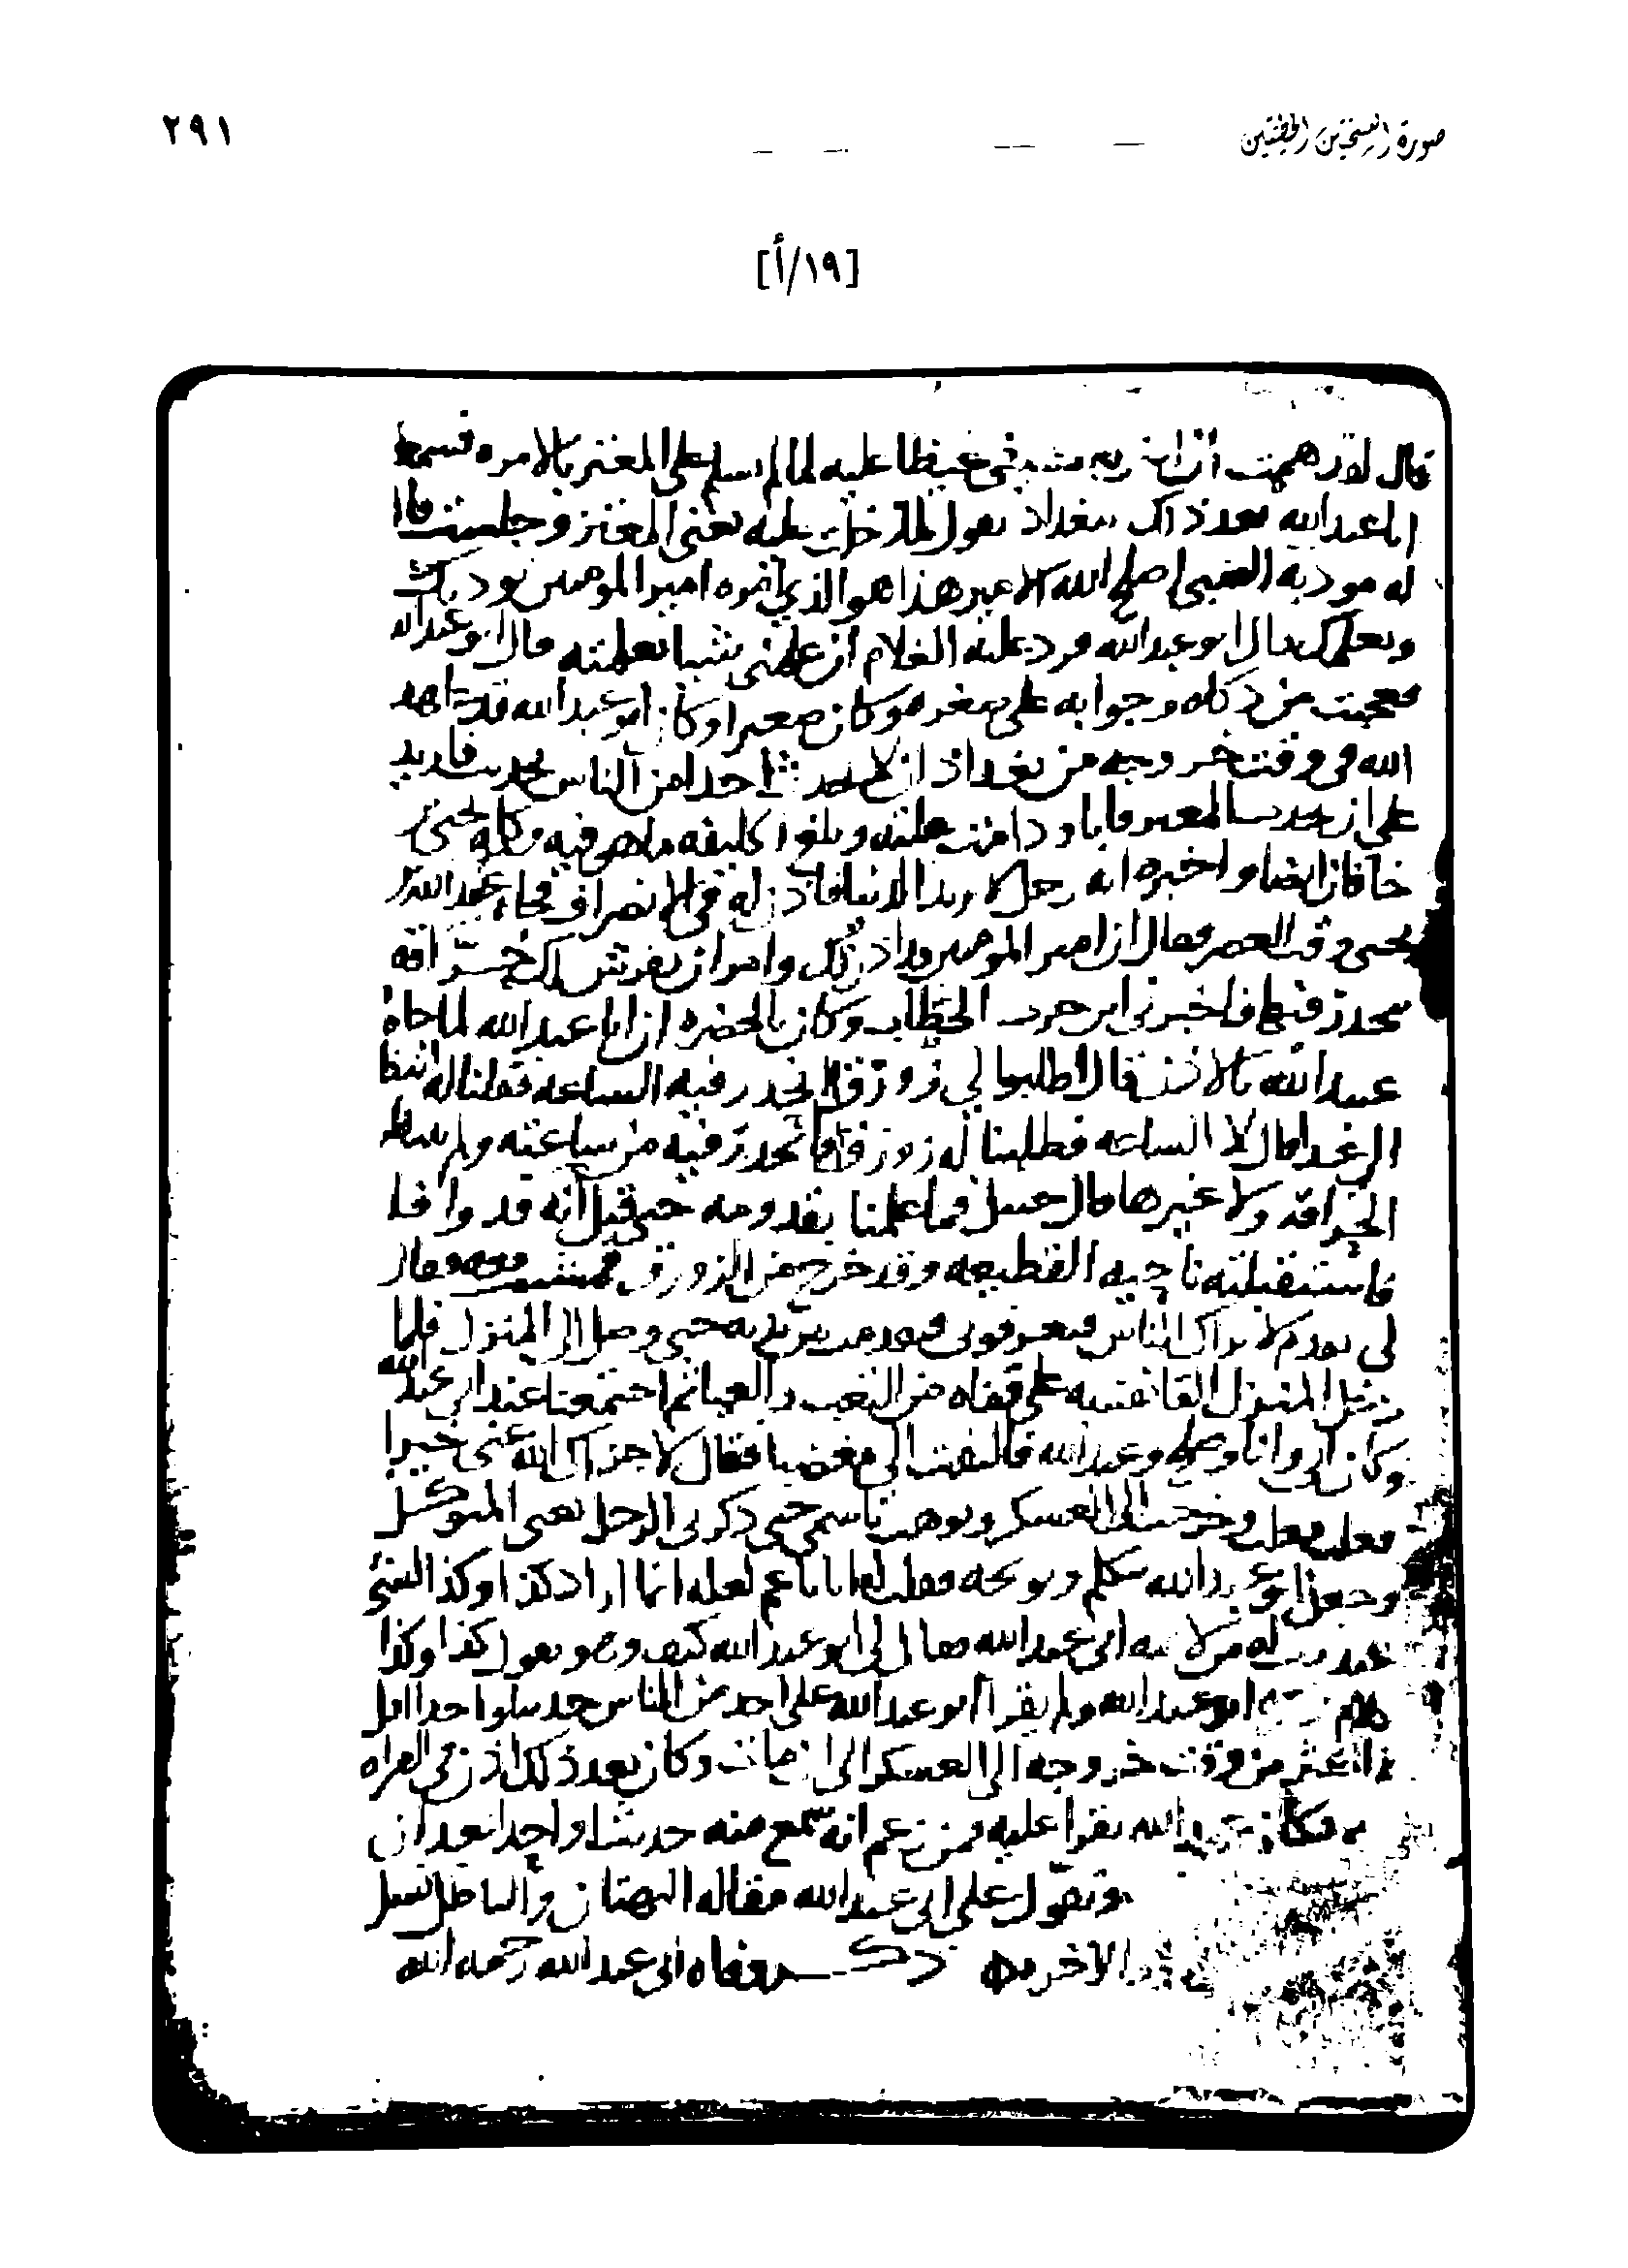 صورة النسختين الخطيتين
٢٩١
[١٩/أ]
قال لقد هممت ان غيظا عليه لما لم يسلم على المعتز بالامره فسمعت
ابا عبد الله بعد ذاك ببغداد يقول لما دخلت عليه يعنى المعتز وجلست قال
له مودبه الصبي اصلح الله الامير هذا هو الذي امره امير المومنين يودبك
ويعلمك قال ابو عبد الله فرد عليه الغلام ان علمنى شيا تعلمته قال ابو عبد الله
فعجبت من ذكاه وجوابه على صغره وكان صغيرا وكان ابو عبد الله قد عاهد
الله فى وقت خروجه من بغداد ان لا يحدث احدا من الناس بحديث فاريد
على ان يحدث المعتز فابا ودامت علته وبلغ الخليفه ما هو فيه وكلمه يحيى بن
خاقان ايضا واخبره انه رجل لا يريد الدنيا فاذن له فى الانصراف فجاء عبيد الله بن
يحيى وقت العصر فقال ان امير المومنين قد اذن لك وامر ان يفرش لك حراقه
تنحدر فيها فاخبرنى ابن حرب الخطاب وكان بالحضره ان ابا عبد الله لما جاه
عبيد الله بالاذن قال اطلبوا لي زورقا انحدر فيه الساعه فقلنا له انتظر
الى غد فقال لا الساعه فطلبنا له زورقا فانحدر فيه من ساعته ولم ينتظر
الحراقه ولا غيرها قال حنبل فما علمنا بقدومه حتى قيل انه قد وافا
فاستقبلته ناحيه القطيعه وقد خرج من الزورق فمشيت معه فقال
لى تقدم لا يراك الناس فيعرفونى فتقدمت بين يديه حتى وصل الى المنزل فلما
دخل المنزل القا نفسه على قفاه من التعب والعيا ثم اجتمعنا عند ابى عبد الله
وكان ابى وانا وصالح وعبد الله فالتفت الى مغضبا فقال لا جزاك الله عنى خيرا
فعلت وفعلت وخرجت الى العسكر ونوهت باسمى حتى ذكرنى الرجل يعنى المتوكل
وجعل ابو عبد الله يتكلم ويوبخه فقلت له انا يا عم لعله انما اراد كذا وكذا لشى
عبد الله فقال لى ابو عبد الله كيف وهو يقول كذا وكذا
ابو عبد الله ولم يقرا ابو عبد الله على احد من الناس حديثا واحدا
من وقت خروجه الى العسكر الى ان مات وكان بعد ذلك اذن فى القراه
فكان عبد الله يقرا عليه فمن زعم انه سمع منه حديثا واحدا بعد ان
وتقول على ابى عبد الله مقاله البهتان والباطل نسل
الاخره ذكر وفاه ابى عبد الله رحمه الله